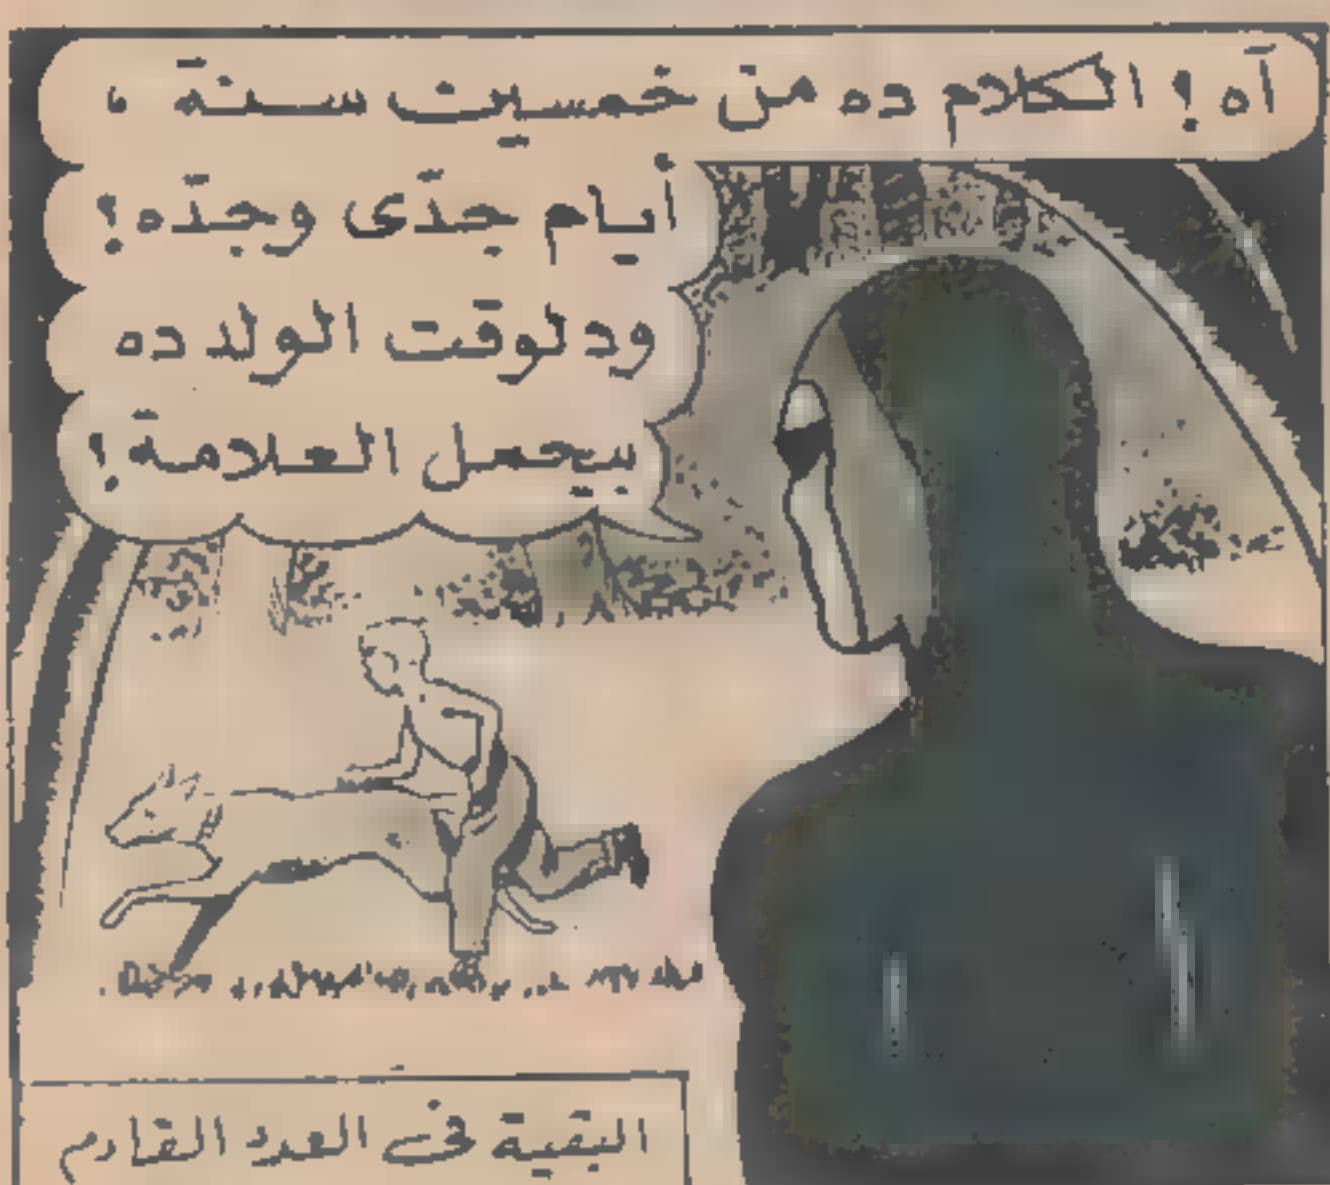 آه ! الكلام ده من خمسين سنة ،
أيام جدّى وجدّه !
ودلوقت الولد ده
بيحمل العلامة !
البقية فى العدد القادم